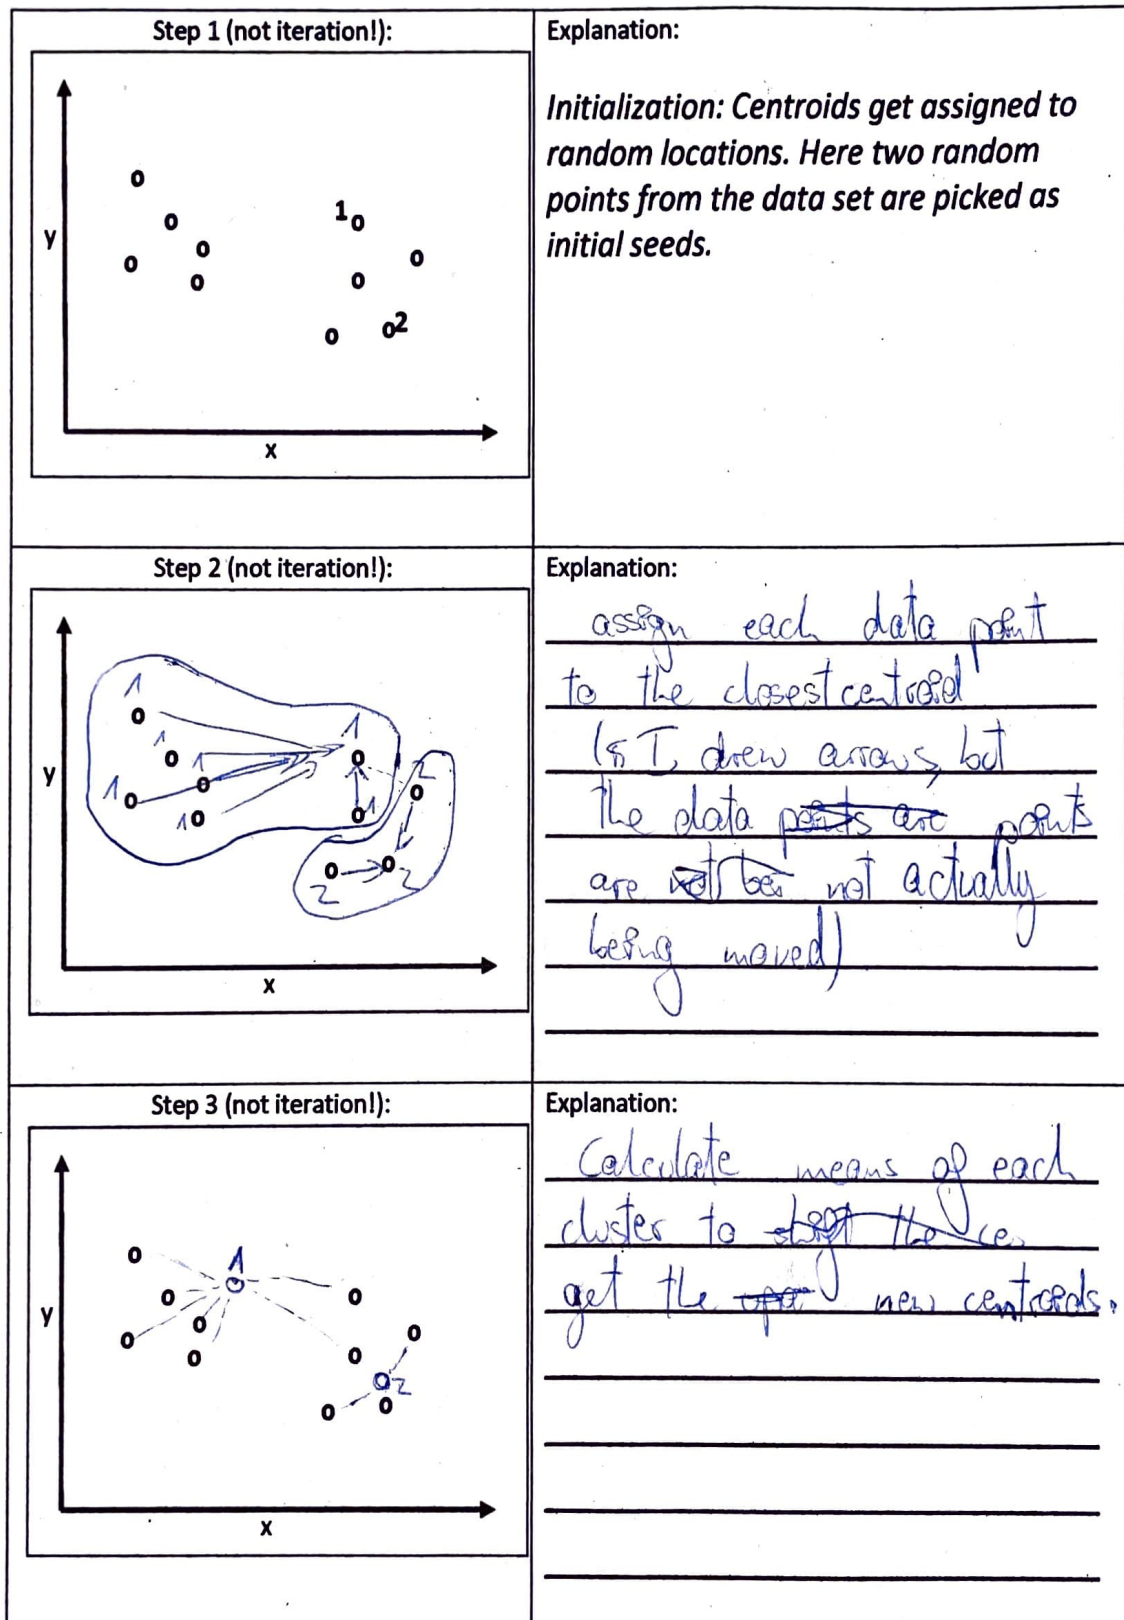 Step 1 (not iteration!):
Explanation:
Initialization: Centroids get assigned to
random locations. Here two random
points from the data set are picked as
initial seeds.
1
2
y
x
Step 2 (not iteration!):
Explanation:
assign each data point
to the closest centroid
(I drew arrows, but
the data points are points
are not not actually
being moved)
1
1
1
1
1
1
1
2
2
2
y
x
Step 3 (not iteration!):
Explanation:
Calculate means of each
cluster to shift the ce
get the new centroids.
1
2
y
x